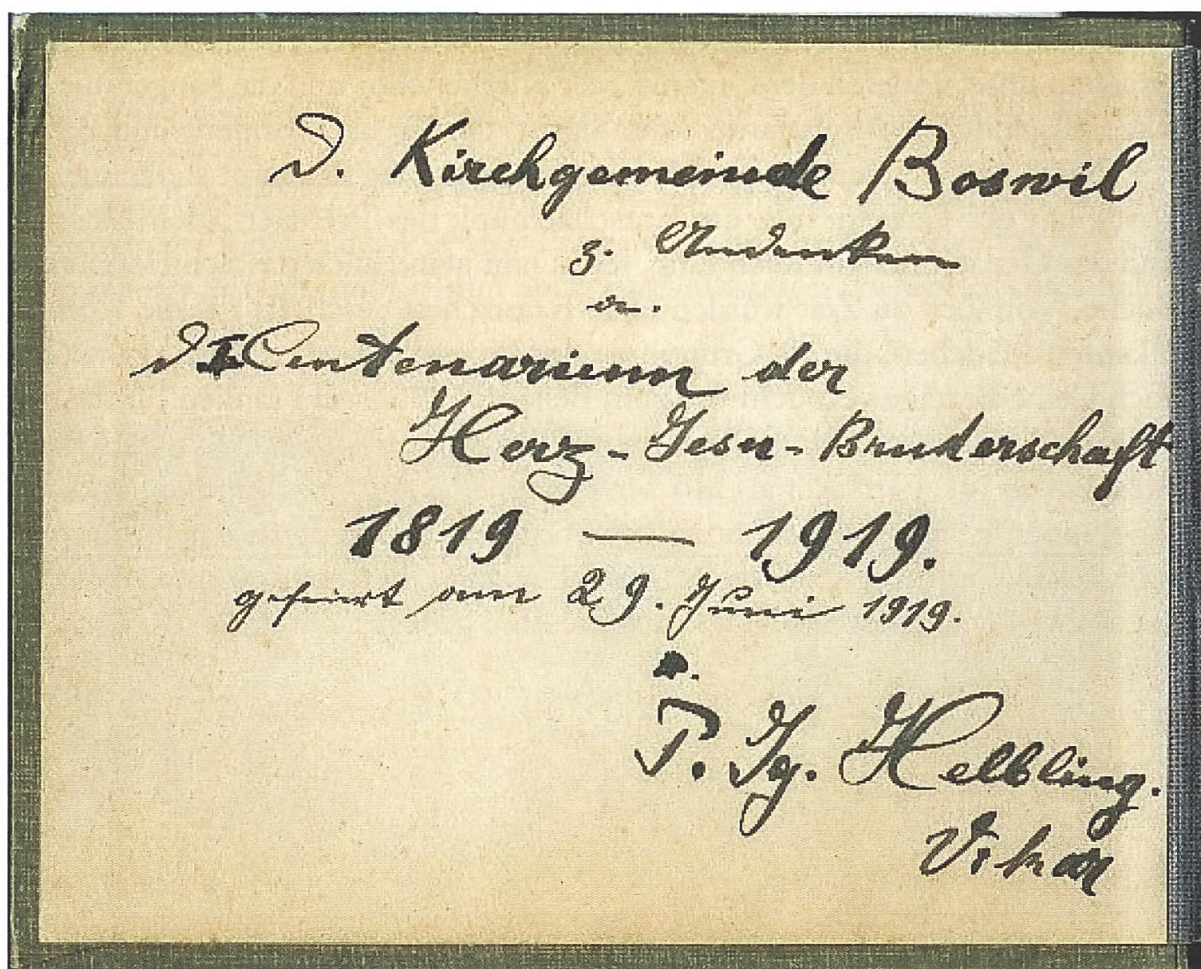 D. Kirchgemeinde Boswil
z. Andenken
a.
d. I Centenarium der
Herz-Jesu-Bruderschaft
1819 — 1919.
gefeiert am 29. Juni 1919.
P. Ig. Helbling.
Vikar